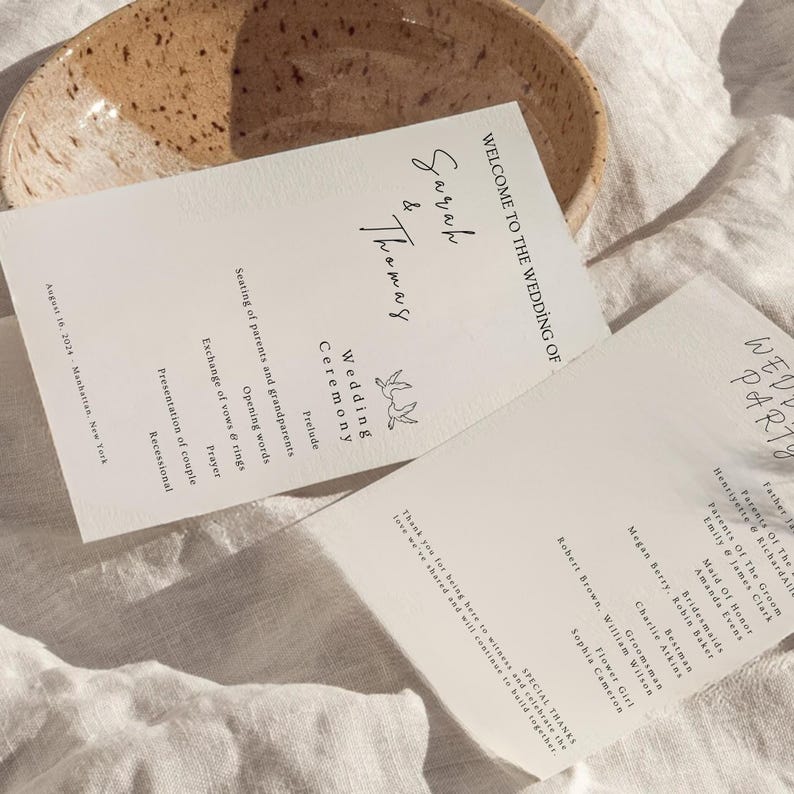 WELCOME TO THE WEDDİNG OF
Sarah
&
Thomas
Wedding
Ceremony
Prelude
Seating of parents and grandparents
Opening words
Prayer
Exchange of vows & rings
Presentation of couple
Recessional
August 16, 2024 - Manhattan, New York
PARTY
Father
Parents Of The
Henriyette & Richard
Parents Of The Groom
Emily & James Clark
Maid Of Honor
Amanda Evens
Bridesmaids
Megan Berry, Robin Baker
Bestman
Charlie Atkins
Groomsman
Robert Brown, William Wilson
Flower Girl
Sophia Cameron
SPECIAL THANKS
Thank you for being here to witness and celebrate the
love we've shared and will continue to build together.